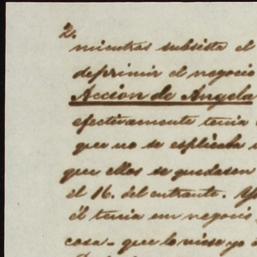 2.
mientras subsista el
deprimir el negocio
Accion de Angela
efectivamente tenia
que no se esplicaba
que ellos se quedasen
el 16. del entrante. Y
él tenia un negocio
cosa - que lo viese yo